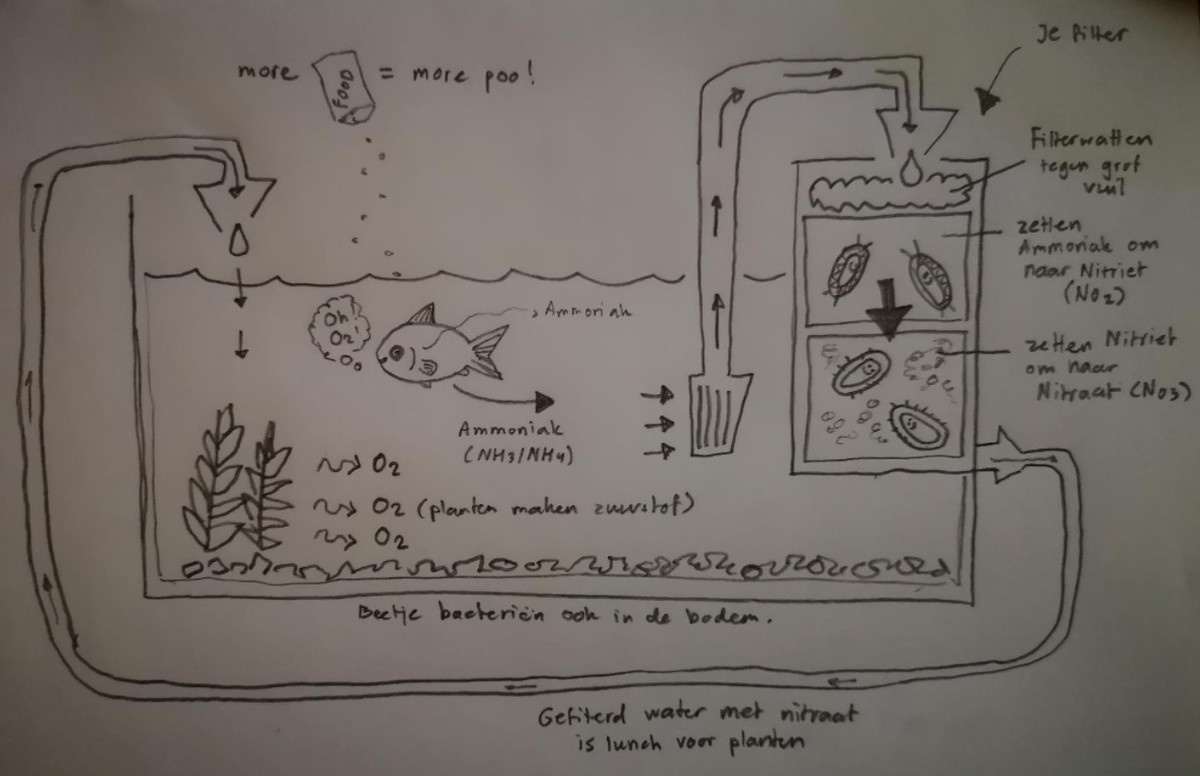 Je filter
more FOOD = more poo!
Filterwatten
tegen grof
vuil
zetten
Ammoniak om
naar Nitriet
(NO2)
Oh!
O2
Ammoniak
zetten Nitriet
om naar
Nitraat (NO3)
Ammoniak
(NH3/NH4)
O2
O2 (planten maken zuurstof)
O2
Beetje bacteriën ook in de bodem.
Gefilterd water met nitraat
is lunch voor planten